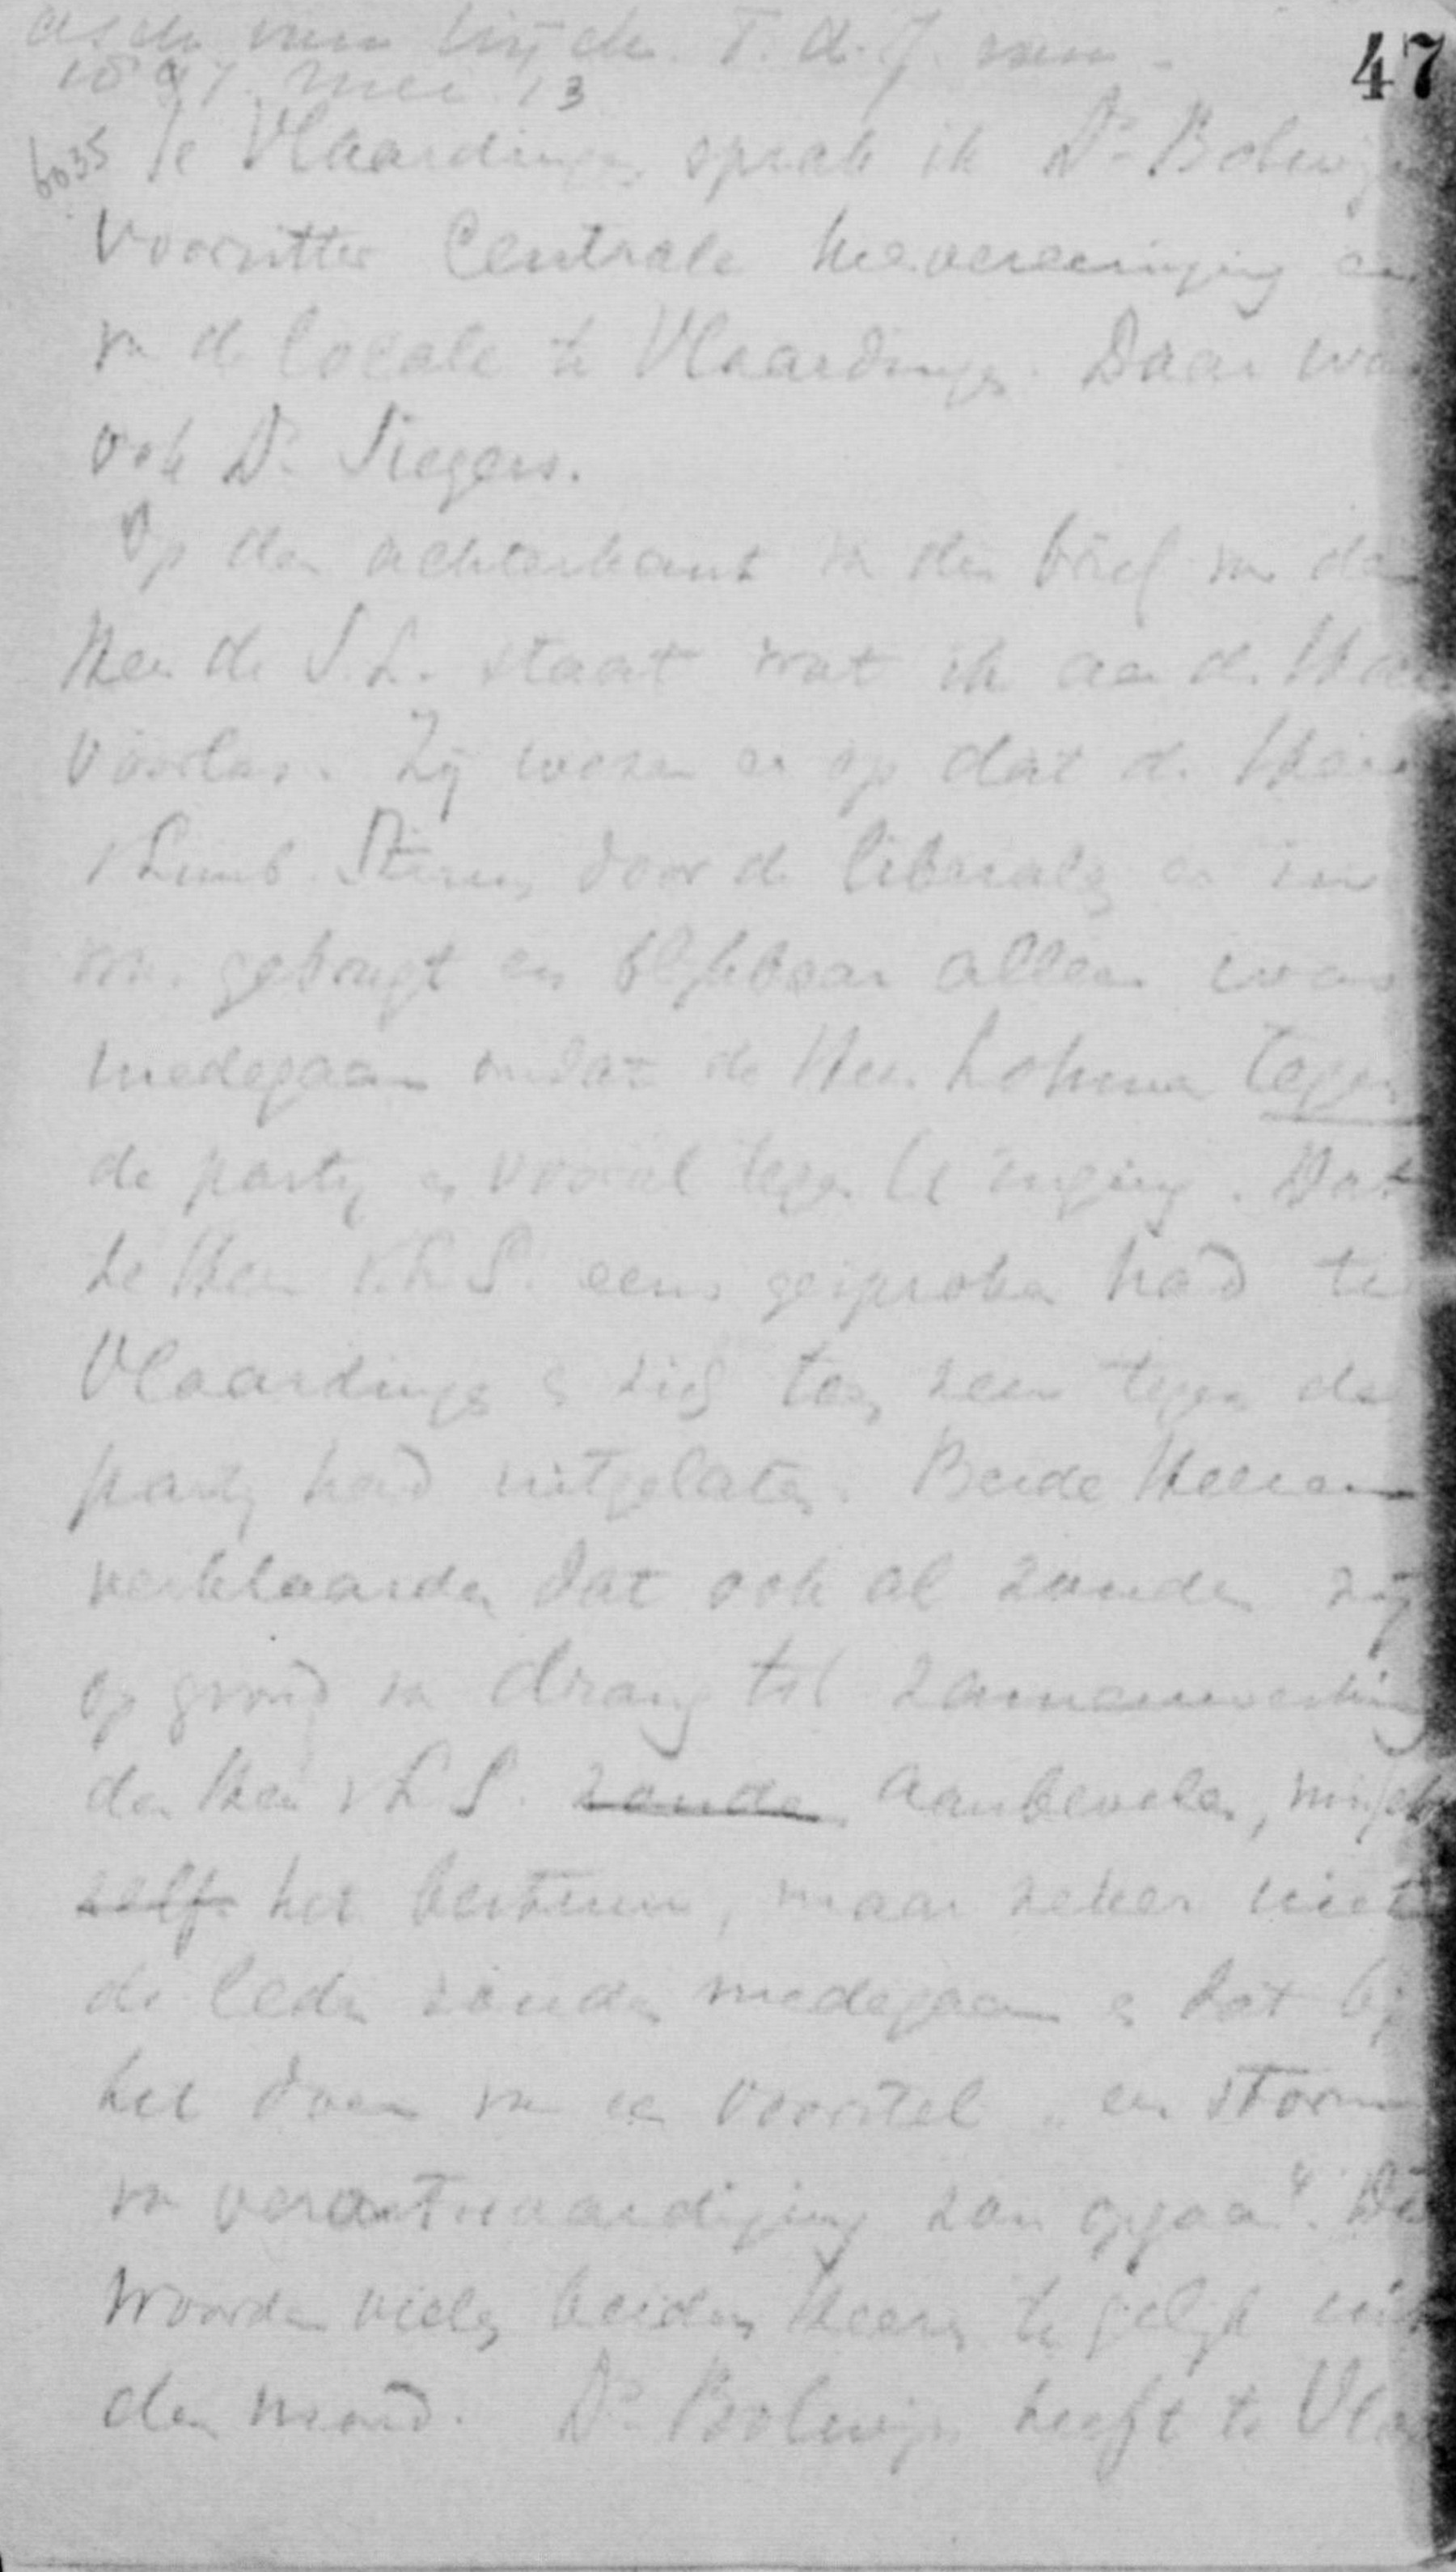 47
1897 Mei 13
6035 Te Vlaardingen sprak ik Ds Bolwijn
Voorzitter Centrale Kiesvereeniging en
vn de locale te Vlaardingen. Daar was
ook Ds Siegers.
Op den achterkant vn den brief vn den
Heer de S.L. staat wat ik aan de Heeren
voorlas. Zij wezen er op dat de Heer
v Limb. Stirum, door de liberalen
gebruigt en blijkbaar alleen was
medegaan omdat de Heer Lohman tegen
de partij en vooral tegen U inging. Dat
de Heer v.L.S. eens gesproken had te
Vlaardingen en zich toen zeer tegen de
partij had uitgelaten. Beide Heeren
verklaarden dat ook al zouden zij
op grond vn drang tot zamenwerking
den Heer v L S. zouden aanbevelen,
zelfs het bestuur, maar zeker niet
de leden zouden medegaan en dat bij
het doen vn een voorstel „een storm
vn verontwaardiging zou opgaan". Die
woorden vielen beiden Heeren te gelijk uit
den mond. Ds Bolwijn heeft te Vlaa